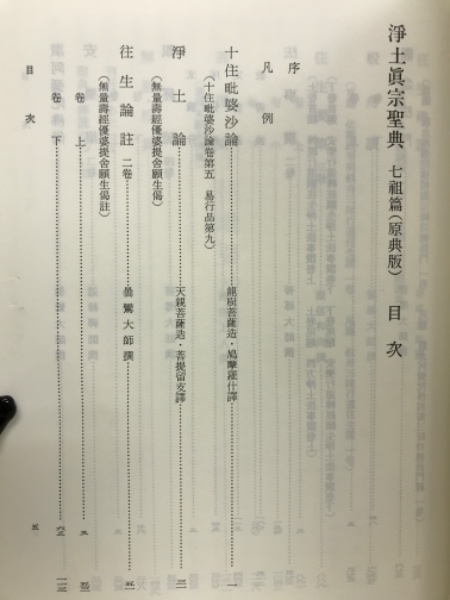 淨土眞宗聖典 七祖篇(原典版) 目次
序
凡例
十住毗婆沙論 龍樹菩薩造・鳩摩羅什譯 一
(十住毗婆沙論卷第五 易行品第九)
淨土論 天親菩薩造・菩提留支譯
(無量壽經優婆提舍願生偈)
往生論註 二卷 曇鸞大師撰
(無量壽經優婆提舍願生偈註)
卷上
卷下
目次